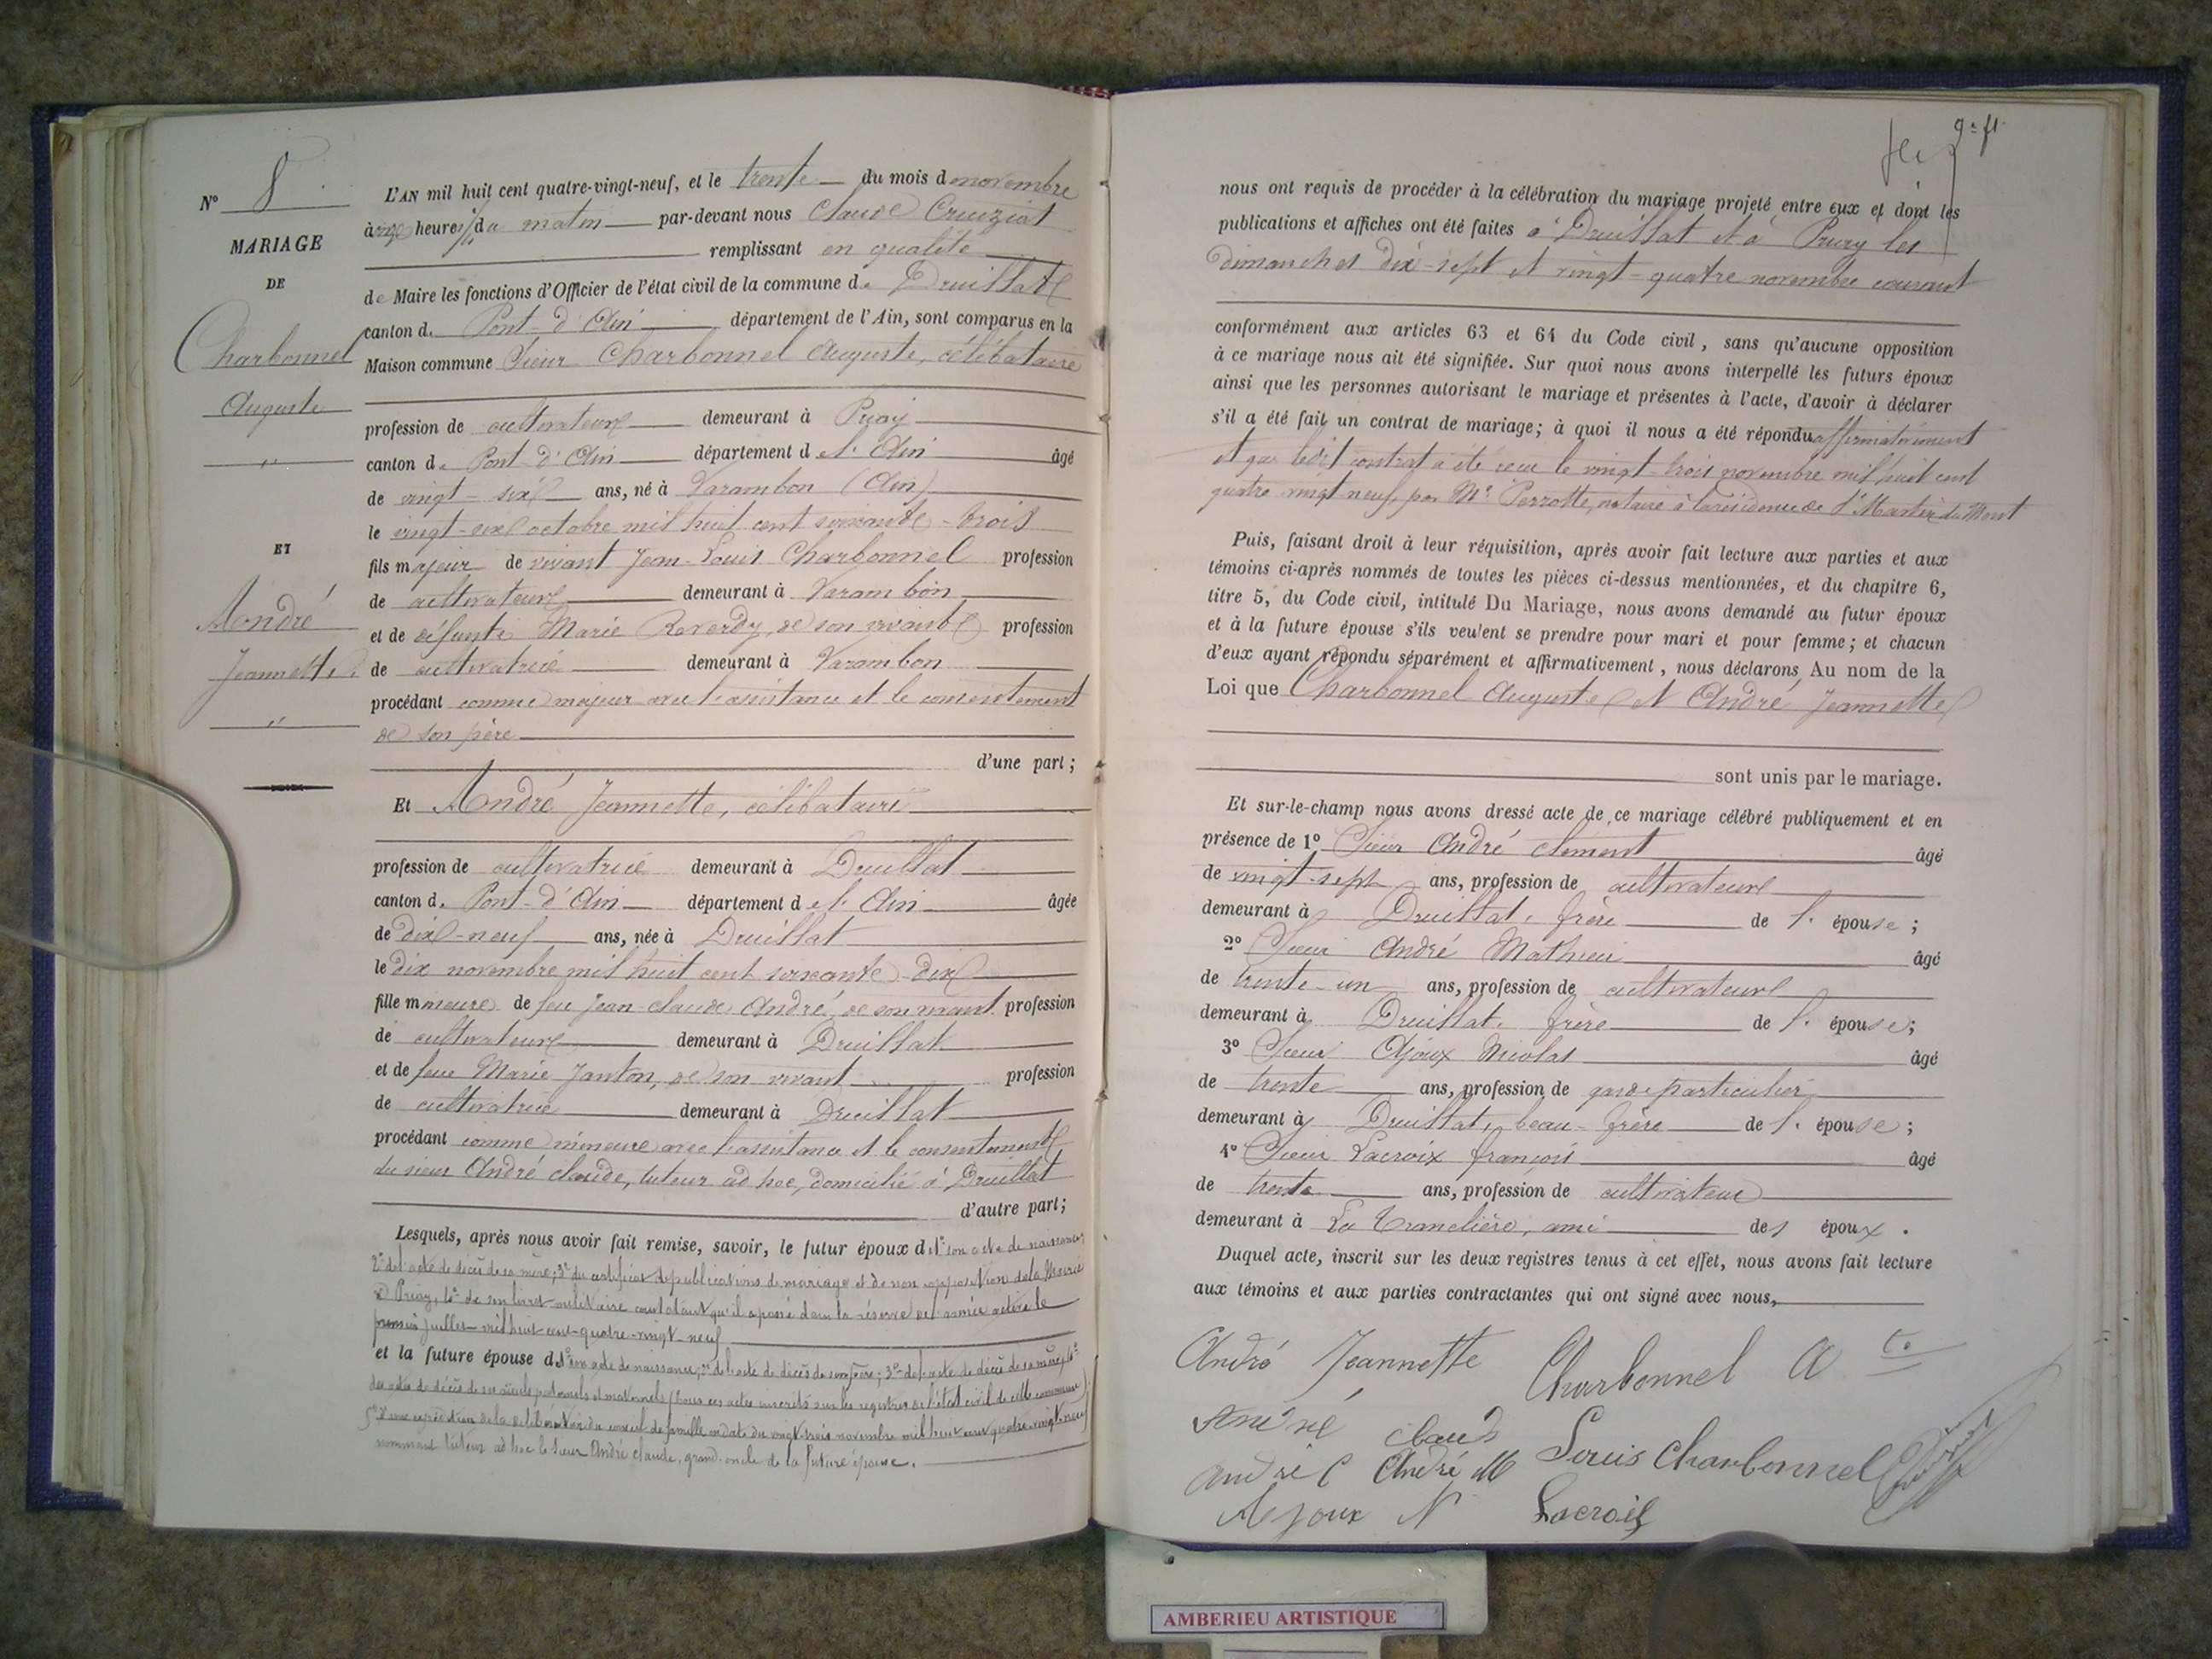 N° 8
MARIAGE
DE
Charbonnel
Auguste
"
ET
André
Jeannette
"
L'AN mil huit cent quatre-vingt-neuf, et le trente du mois de novembre
à heures du matin par-devant nous Claude Cruziat
remplissant en qualité
de Maire les fonctions d'Officier de l'état civil de la commune de Druillat
canton de Pont-d'Ain département de l'Ain, sont comparus en la
Maison commune Sieur Charbonnel Auguste, célibataire
profession de cultivateur demeurant à Priay
canton de Pont-d'Ain département de l'Ain âgé
de vingt-six ans, né à Varambon (Ain)
le vingt-six octobre mil huit cent soixante-trois
fils majeur de vivant Jean-Louis Charbonnel profession
de cultivateur demeurant à Varambon
et de défunte Marie Reverdy, de son vivant profession
de cultivatrice demeurant à Varambon
procédant comme majeur avec l'assistance et le consentement
de son père
d'une part;
Et André Jeannette, célibataire
profession de cultivatrice demeurant à Druillat
canton de Pont-d'Ain département de l'Ain âgée
de dix-neuf ans, née à Druillat
le dix novembre mil huit cent soixante-dix
fille mineure de feu Jean-Claude André, de son vivant profession
de cultivateur demeurant à Druillat
et de feue Marie Janton, de son vivant profession
de cultivatrice demeurant à Druillat
procédant comme mineure avec l'assistance et le consentement
du sieur André Claude, tuteur ad hoc, domicilié à Druillat
d'autre part;
Lesquels, après nous avoir fait remise, savoir, le futur époux de 1° son acte de naissance
2° de l'acte de décès de sa mère; 3° du certificat de publications de mariage et de non opposition de la Mairie
de Priay, 4° de son livret militaire constatant qu'il a passé dans la réserve de l'armée active le
premier juillet mil huit cent quatre-vingt-neuf
et la future épouse de 1° son acte de naissance; 2° de l'acte de décès de son père; 3° de l'acte de décès de sa mère; 4°
des actes de décès de ses aïeuls paternels et maternels (tous ces actes inscrits sur les registres de l'état civil de cette commune)
5° d'une expédition de la délibération du conseil de famille en date du vingt-trois novembre mil huit cent quatre-vingt-neuf
nommant tuteur ad hoc le sieur André Claude, grand-oncle de la future épouse.
nous ont requis de procéder à la célébration du mariage projeté entre eux et dont les
publications et affiches ont été faites à Druillat et à Priay les
dimanches dix-sept et vingt-quatre novembre courant
conformément aux articles 63 et 64 du Code civil, sans qu'aucune opposition
à ce mariage nous ait été signifiée. Sur quoi nous avons interpellé les futurs époux
ainsi que les personnes autorisant le mariage et présentes à l'acte, d'avoir à déclarer
s'il a été fait un contrat de mariage; à quoi il nous a été répondu affirmativement
et que ledit contrat a été reçu le vingt-trois novembre mil huit cent
quatre vingt neuf, par Me Perrotte, notaire à la résidence de St Martin du Mont
Puis, faisant droit à leur réquisition, après avoir fait lecture aux parties et aux
témoins ci-après nommés de toutes les pièces ci-dessus mentionnées, et du chapitre 6,
titre 5, du Code civil, intitulé Du Mariage, nous avons demandé au futur époux
et à la future épouse s'ils veulent se prendre pour mari et pour femme; et chacun
d'eux ayant répondu séparément et affirmativement, nous déclarons Au nom de la
Loi que Charbonnel Auguste et André Jeannette
sont unis par le mariage.
Et sur-le-champ nous avons dressé acte de ce mariage célébré publiquement et en
présence de 1° Sieur André Clément âgé
de vingt-sept ans, profession de cultivateur
demeurant à Druillat, frère de l'épouse;
2° Sieur André Mathieu âgé
de trente-un ans, profession de cultivateur
demeurant à Druillat, frère de l'épouse;
3° Sieur Ajoux Nicolas âgé
de trente ans, profession de garde particulier
demeurant à Druillat, beau-frère de l'épouse;
4° Sieur Lacroix françois âgé
de trente ans, profession de cultivateur
demeurant à La Tranclière, ami des époux.
Duquel acte, inscrit sur les deux registres tenus à cet effet, nous avons fait lecture
aux témoins et aux parties contractantes qui ont signé avec nous,
André Jeannette Charbonnel A te
André claud
André C André M Louis Charbonnel
Ajoux N Lacroix
AMBERIEU ARTISTIQUE